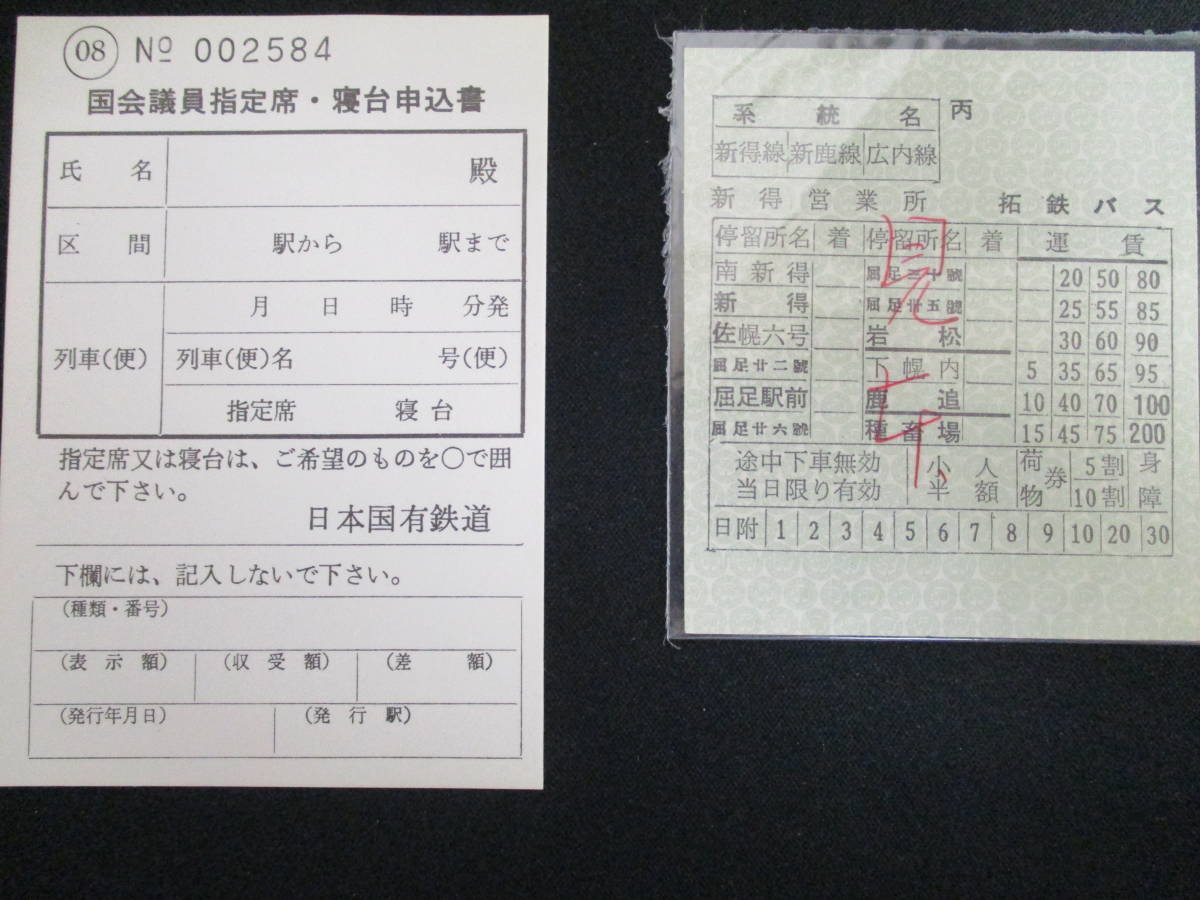 08 № 002584
国会議員指定席・寝台申込書
氏 名 殿
区 間 駅から 駅まで
月 日 時 分発
列車(便) 列車(便)名 号(便)
指定席 寝台
指定席又は寝台は、ご希望のものを○で囲
んで下さい。
日本国有鉄道
下欄には、記入しないで下さい。
(種類・番号)
(表示額) (収受額) (差 額)
(発行年月日) (発行駅)
系統名 丙
新得線 新鹿線 広内線
新得営業所 拓鉄バス
停留所名 着 停留所名 着 運賃
南新得 屈足三十號 20 50 80
新得 屈足廿五號 25 55 85
佐幌六号 岩松 30 60 90
屈足廿二號 下幌内 5 35 65 95
屈足駅前 鹿追 10 40 70 100
屈足廿六號 種畜場 15 45 75 200
途中下車無効 小人 荷物券 5割 身障
当日限り有効 半額 10割
日附 1 2 3 4 5 6 7 8 9 10 20 30